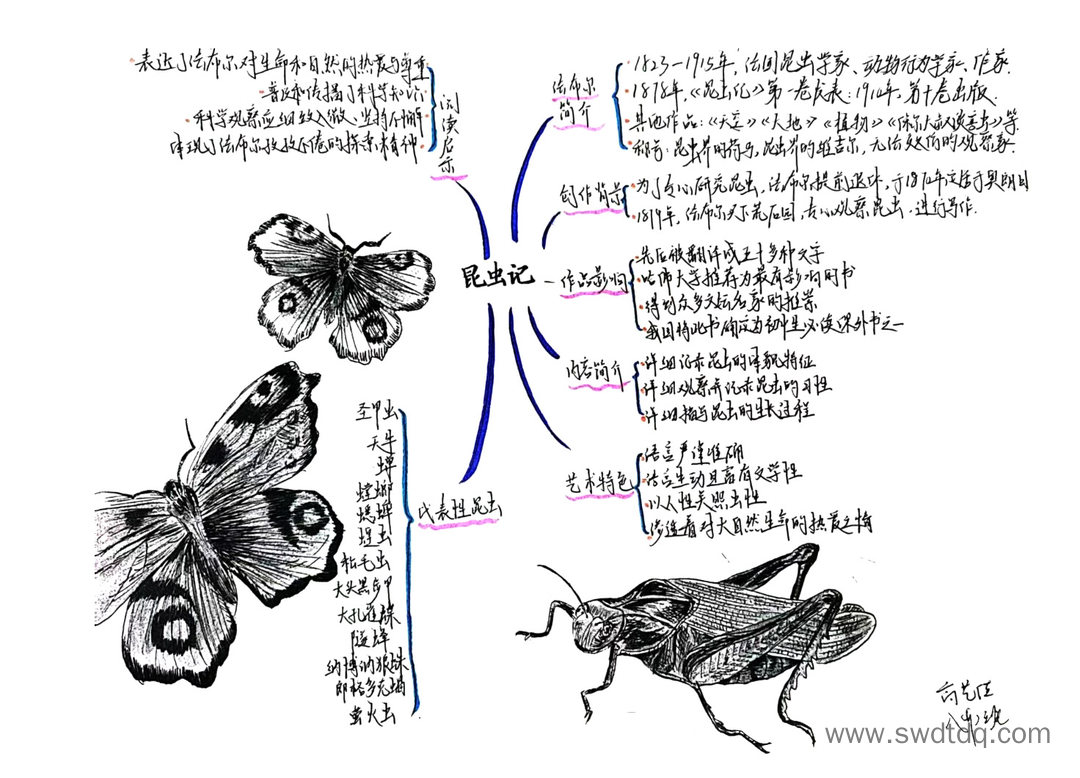 昆虫记
法布尔
简介
1823—1915年，法国昆虫学家、动物行为学家、作家.
1878年，《昆虫记》第一卷发表：1910年，第十卷出版.
其他作品：《天空》《大地》《植物》等
称号：昆虫界的荷马，昆虫界的维吉尔，无法效仿的观察家.
创作背景
为了专心研究昆虫，法布尔提前退休，于1870年定居于奥朗日
1879年，法布尔买下荒石园，专心观察昆虫，进行写作.
作品影响
先后被翻译成五十多种文字
哈佛大学推荐为最有影响的书
得到众多文坛名家的推崇
我国将此书确定为初中生必读课外书之一
内容简介
详细记录昆虫的体貌特征
详细观察并记录昆虫的习性
详细描写昆虫的生长过程
艺术特色
语言严谨准确
语言生动且富有文学性
以人性关照虫性
渗透着对大自然生命的热爱之情
代表性昆虫
圣甲虫
天牛
蝉
螳螂
蟋蟀
埋虫
松毛虫
大头黑步甲
大孔雀蝶
隧蜂
纳博讷狼蛛
郎格多克蝎
萤火虫
阅读启示
表达了法布尔对生命和自然的热爱与尊重
普及和传播了科学知识
科学观察应细致入微、坚持不懈
体现了法布尔孜孜不倦的探索精神
www.swdtdq.com